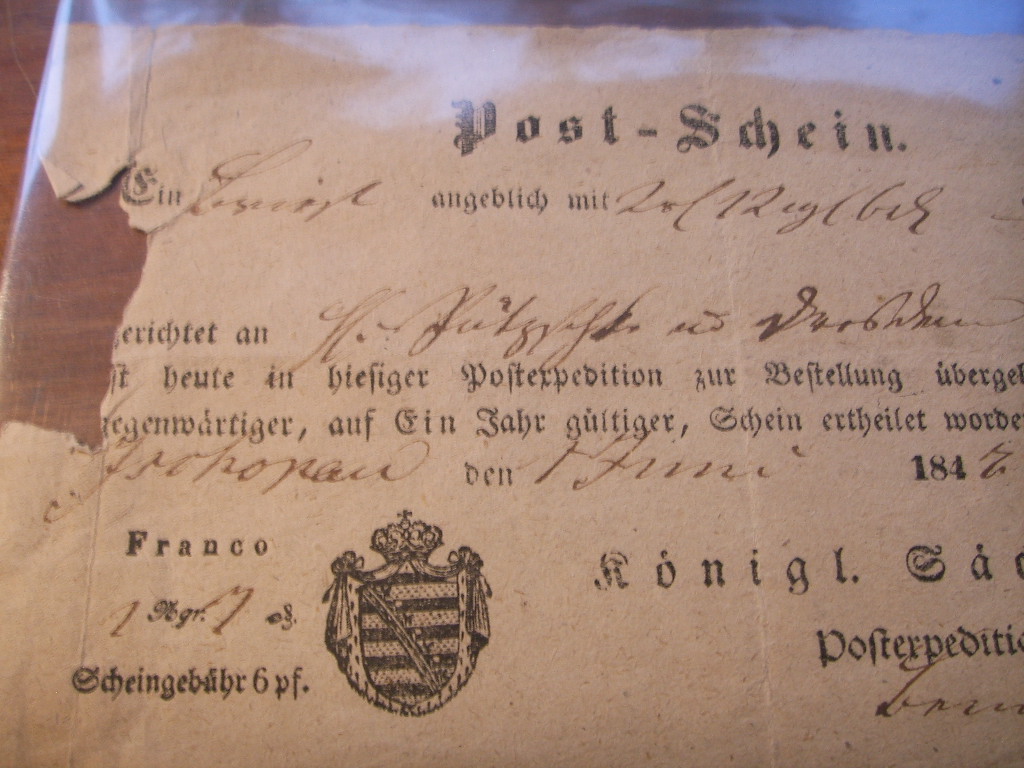 Post-Schein.
Ein angeblich mit
erichtet an H. in Dresden
st heute in hiesiger Postexpedition zur Bestellung übergeb
egenwärtiger, auf Ein Jahr gültiger, Schein ertheilet worde
Zschopau den 1 Juni 184
Franco
1 Ngr. 7 ₰.
Scheingebühr 6 pf.
Königl. Säc
Postexpeditio